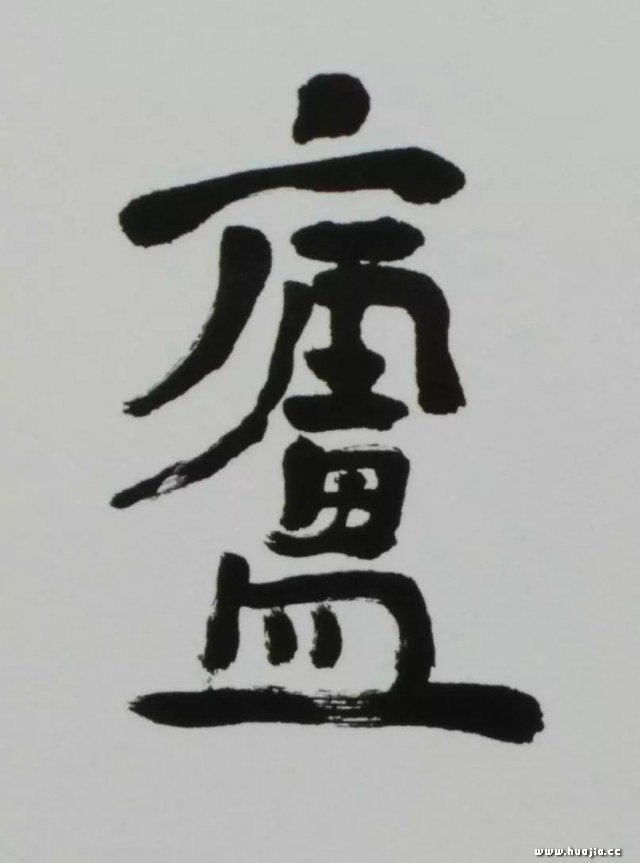 廬
www.huajia.cc